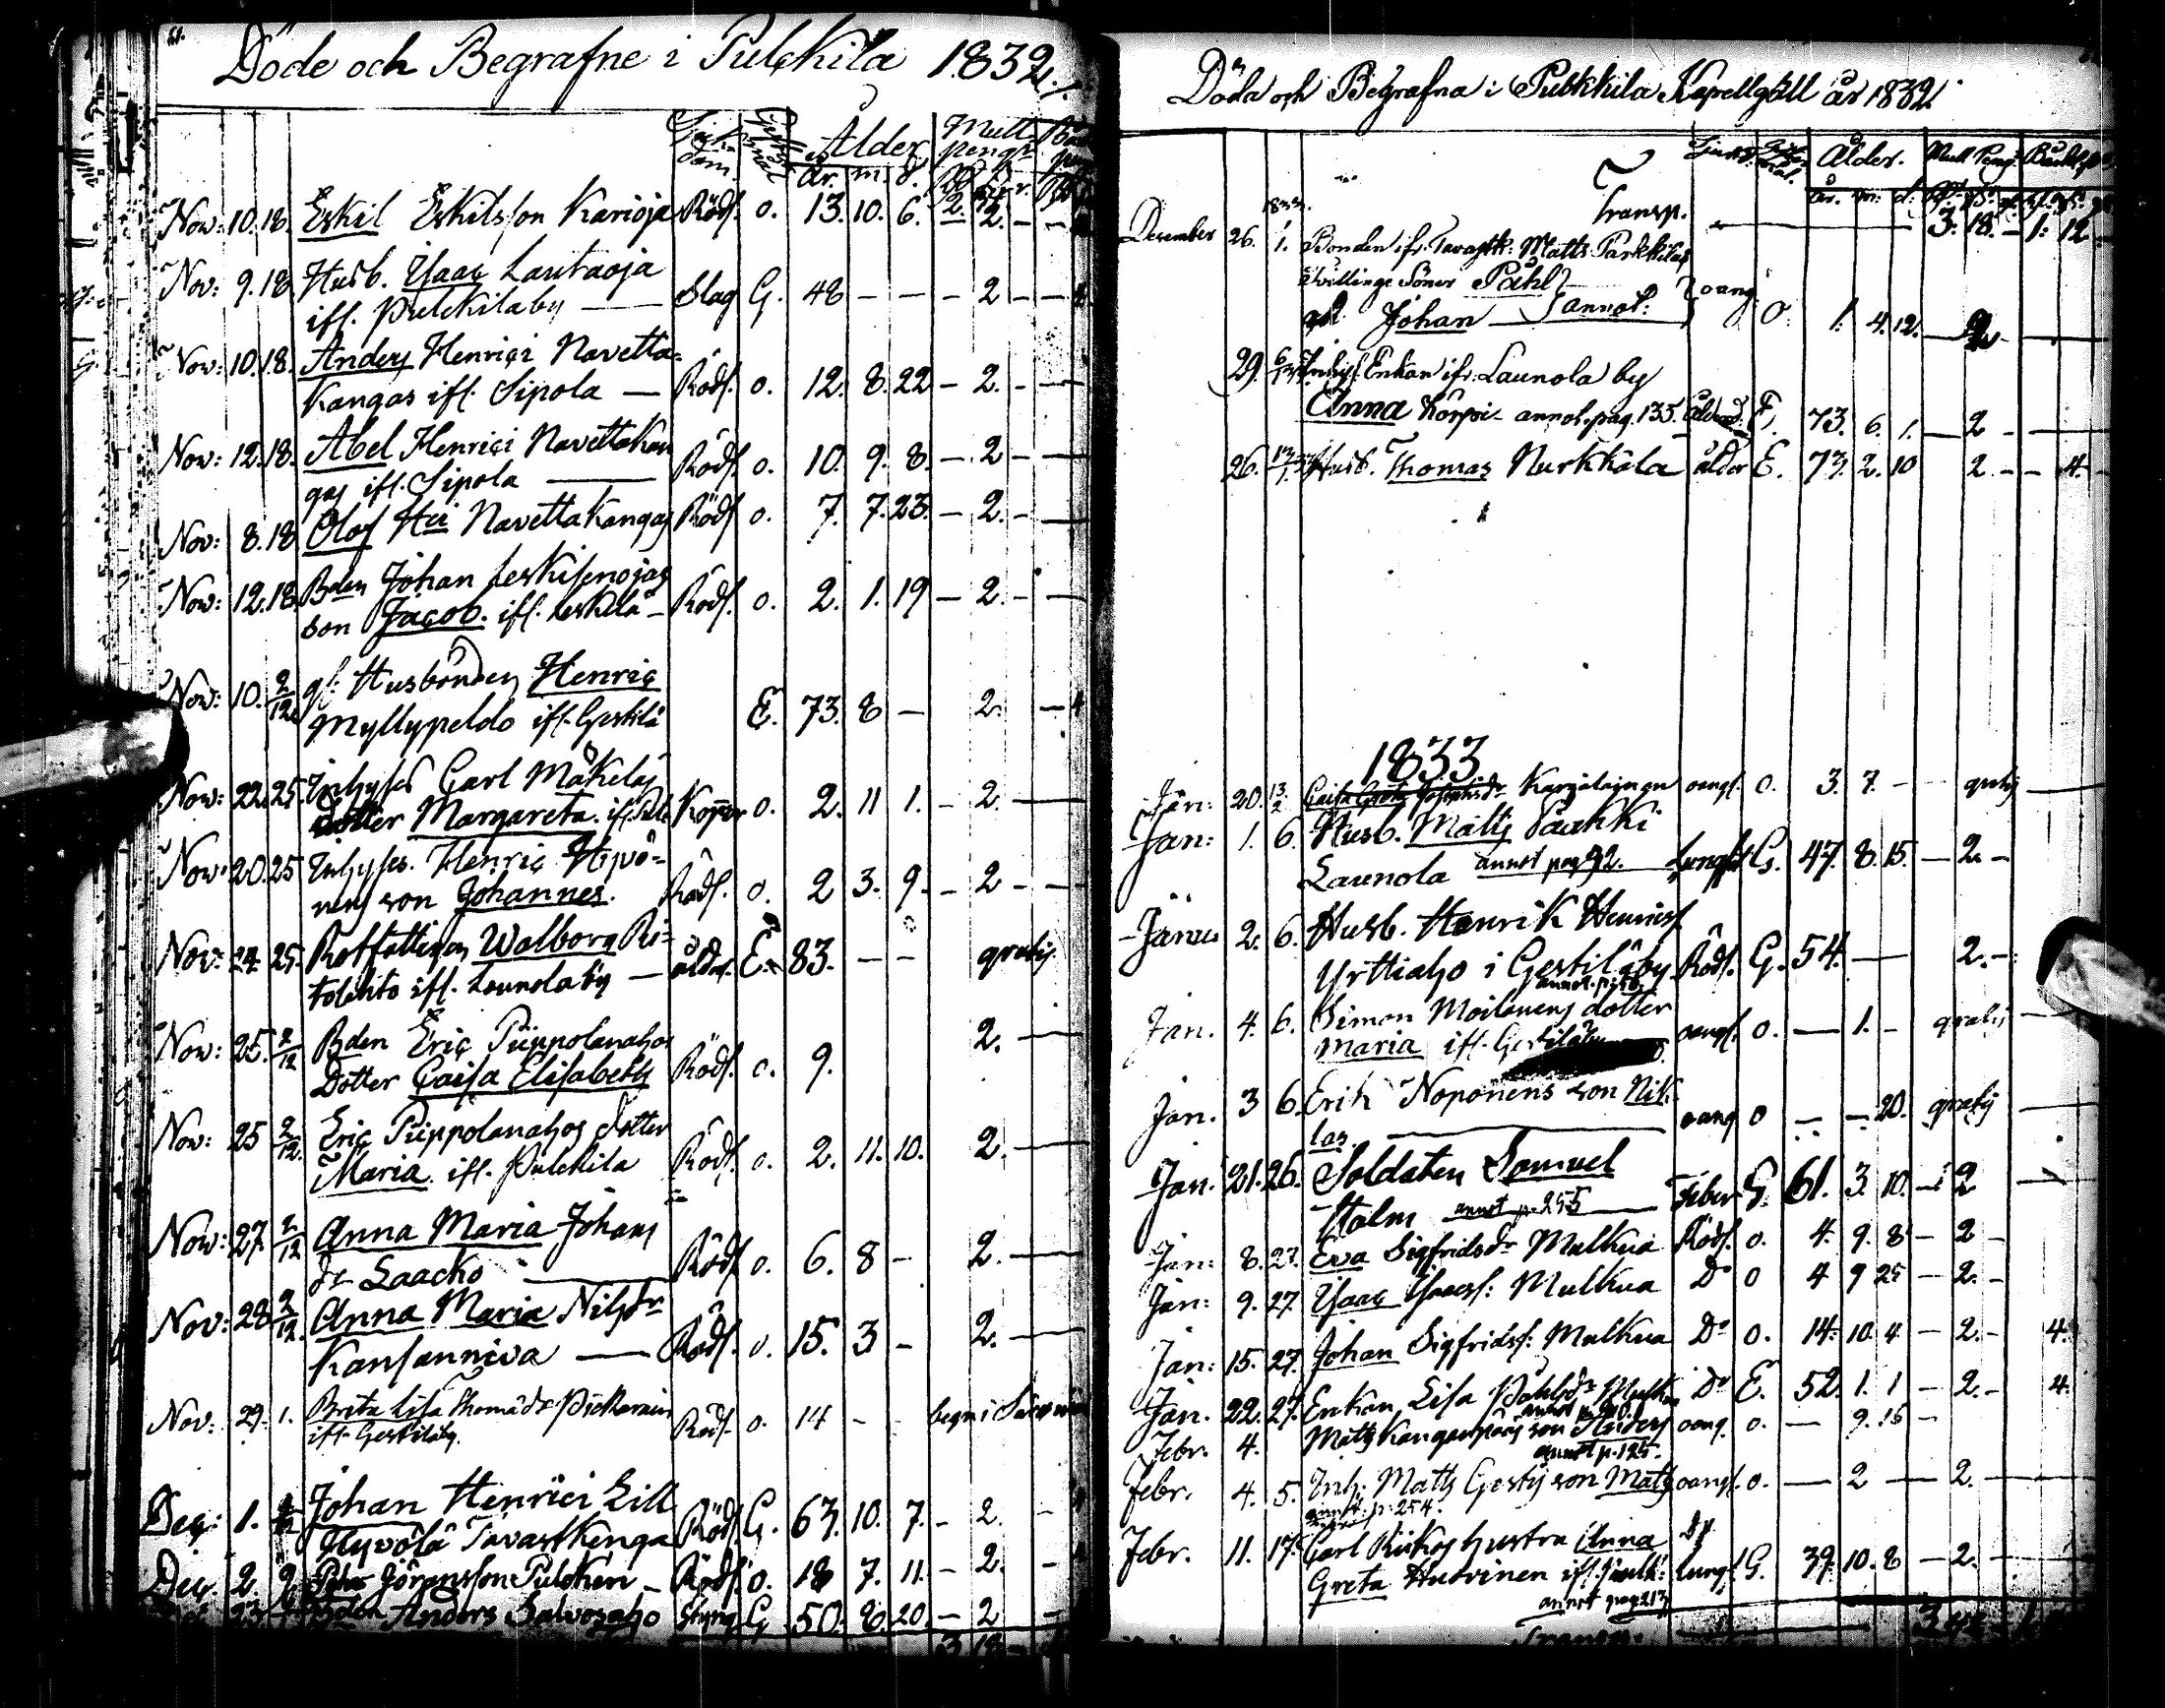 Döde och Begrafne i Pulckila 1832.
Sjukdom. Ålder Mull pengr
år. m. d.
Nov: 10. 18. Eskil Eskilsson Karioja Rödf. o. 13. 10. 6. 2. 2. -
Nov: 9. 18 Husb. Isaac Lautaoja
ifr. Pulckilaby — Slag G. 48 - - - 2 -
Nov: 10. 18. Anders Henrici Navetta=
Kangas ifr. Sipola — Rödf. o. 12. 8. 22 - 2. -
Nov: 12. 18. Abel Henrici Navettakan
gas ifr. Sipola — Rödf. o. 10. 9. 8. - 2 -
Nov: 8. 18 Olof Hci Navettakangas Rödf o. 7. 7. 23. - 2. -
Nov: 12. 18. Bden Johan Leskisenojas
son Jacob. ifr. Leskelä - Rödf. o. 2. 1. 19 - 2. -
Nov: 10. 2/12 gl: Husbonden Henric
Myllypeldo ifr. Gestilä E. 73. 8 - 2.
Nov: 22. 25. Inhyses Carl Mäkeläs
Dotter Margareta. ifr. Pulk Koppor o. 2. 11 1. - 2. -
Nov: 20. 25 Inhyses. Henric Hyvö=
nens son Johannes. Rödf. o. 2 3. 9. - 2 -
Nov: 24. 25. Rotfattigan Walborg Ri=
ifr. Lounola by — ålder. E. 83. - - gratis
Nov: 25. 2/12 Bden Eric Piippolanahos
Dotter Caisa Elisabeth Rödf. o. 9. 2. -
Nov: 25 2/12. Eric Piippolanahos dotter
Maria. ifr. Pulckila Rödf. o. 2. 11. 10. 2. -
Nov: 27. 2/12 Anna Maria Johans
dr Laacko — Rödf o. 6. 8 - 2. -
Nov: 28 2/12. Anna Maria Nilsdr
Kansanniva — Rödf. o. 15. 3 - 2. -
Nov. 29. 1. Brita Lisa Thomædr Pickarain
ifr. Gestiläby. Rödf. o. 14 - - begr i
Dec. 1. Johan Henrici Lill
Hyvölä Tavastkenga Rödf. G. 63. 10. 7. - 2. -
Dec. 2. 9. Petr Göransson Pulckin - Rödf. o. 18 7. 11. - 2. -
Bden Anders Salvosaho Styng G 50. 8. 20. - 2 -
3 18 -
Döda och Begrafna i Pulkkila Kapellgäll år 1832.
Ålder. Mull Peng.
år. m: d:
Transp. — 3. 18. - 1: 12
December 26. 1. Bonden ifr. Tavastk: Matts Parkkilas
tvillinge Söner Påhl
och Johan annot: oang o. 1. 4. 12. 2.
29. 6/1 Inhys. Enkan ifr. Launola by
Anna Korpi annot. pag. 135. Ålderd. E. 73. 6. 1. - 2 -
26. 13/1 Husb. Thomas Nurkkala ålder E. 73. 2. 10 2. - - 4.
1833
Jan: 20. 13/2 Caisa Greta Josephsdr Karjalainen oangf. o. 3. 7. - gratis
Jan: 1. 6. Husb. Matts Paukki
Launola annot pag 92. Lungs G. 47. 8. 15. - 2. -
Janu 2. 6. Husb. Henrik Henrics
Yrttiaho i Gestiläby Rödf. G. 54. - 2. -
Jan. 4. 6. Simon Moilanens dotter
Maria ifr. Gestiläby oangf. o. - 1. - gratis
Jan. 3 6. Erik Noponens son Nik
las. oang o - - 20. gratis
Jan. 21. 26. Soldaten Samuel
Holm annot p. 255 Feber G. 61. 3. 10. - 2
Jan: 8. 27. Eva Sigfridsdr Mulkua Rödf. o. 4. 9. 8 - 2 -
Jan: 9. 27 Isaac Isaacs: Mulkua Do o 4 9 25 - 2. -
Jan: 15. 27. Johan Sigfridss: Mulkua Do o. 14. 10. 4. - 2. - 4.
Jan. 22. 27. Enkan, Lisa Påhlsdr Mulkua Do E. 52. 1. 1 - 2. - 4.
Febr. 4. Matts Kangaspääs son Anders oang. o. - 9. 15 -
annot p. 125.
Febr. 4. 5. Inh: Matts Gestis son Matts oangf. o. - 2 - 2.
annot p. 254.
Febr. 11. 17. Carl Riikos hustru Anna
Greta Hudvinen ifr. Lungs G. 39. 10. 8 - 2. -
annot pag 217
Transp.